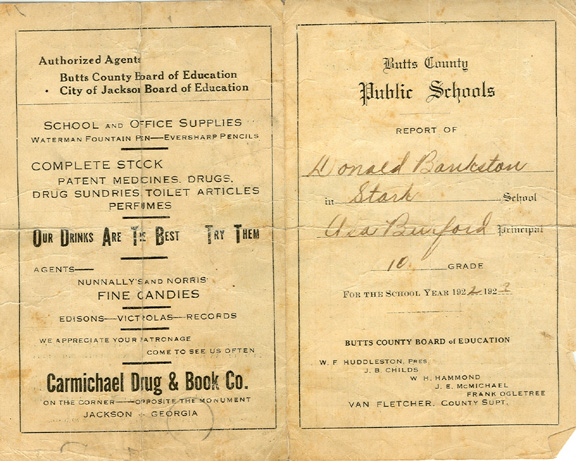 Authorized Agents
Butts County Board of Education
• City of Jackson Board of Education
SCHOOL AND OFFICE SUPPLIES
WATERMAN FOUNTAIN PEN—EVERSHARP PENCILS
COMPLETE STOCK
PATENT MEDCINES, DRUGS,
DRUG SUNDRIES, TOILET ARTICLES
PERFUMES
OUR DRINKS ARE THE BEST TRY THEM
AGENTS—
NUNNALLY'S AND NORRIS
FINE CANDIES
EDISONS—VICTROLAS—RECORDS
WE APPRECIATE YOUR PATRONAGE
COME TO SEE US OFTEN
Carmichael Drug & Book Co.
ON THE CORNER—OPPOSITE THE MONUMENT
JACKSON - GEORGIA
Butts County
Public Schools
REPORT OF
Donald Bankston
in Stark School
Asa Burford Principal
10 GRADE
FOR THE SCHOOL YEAR 1922 1923
BUTTS COUNTY BOARD of EDUCATION
W. F. HUDDLESTON, PRES.
J. B. CHILDS
W. H. HAMMOND
J. E. McMICHAEL
FRANK OGLETREE
VAN FLETCHER, COUNTY SUPT.